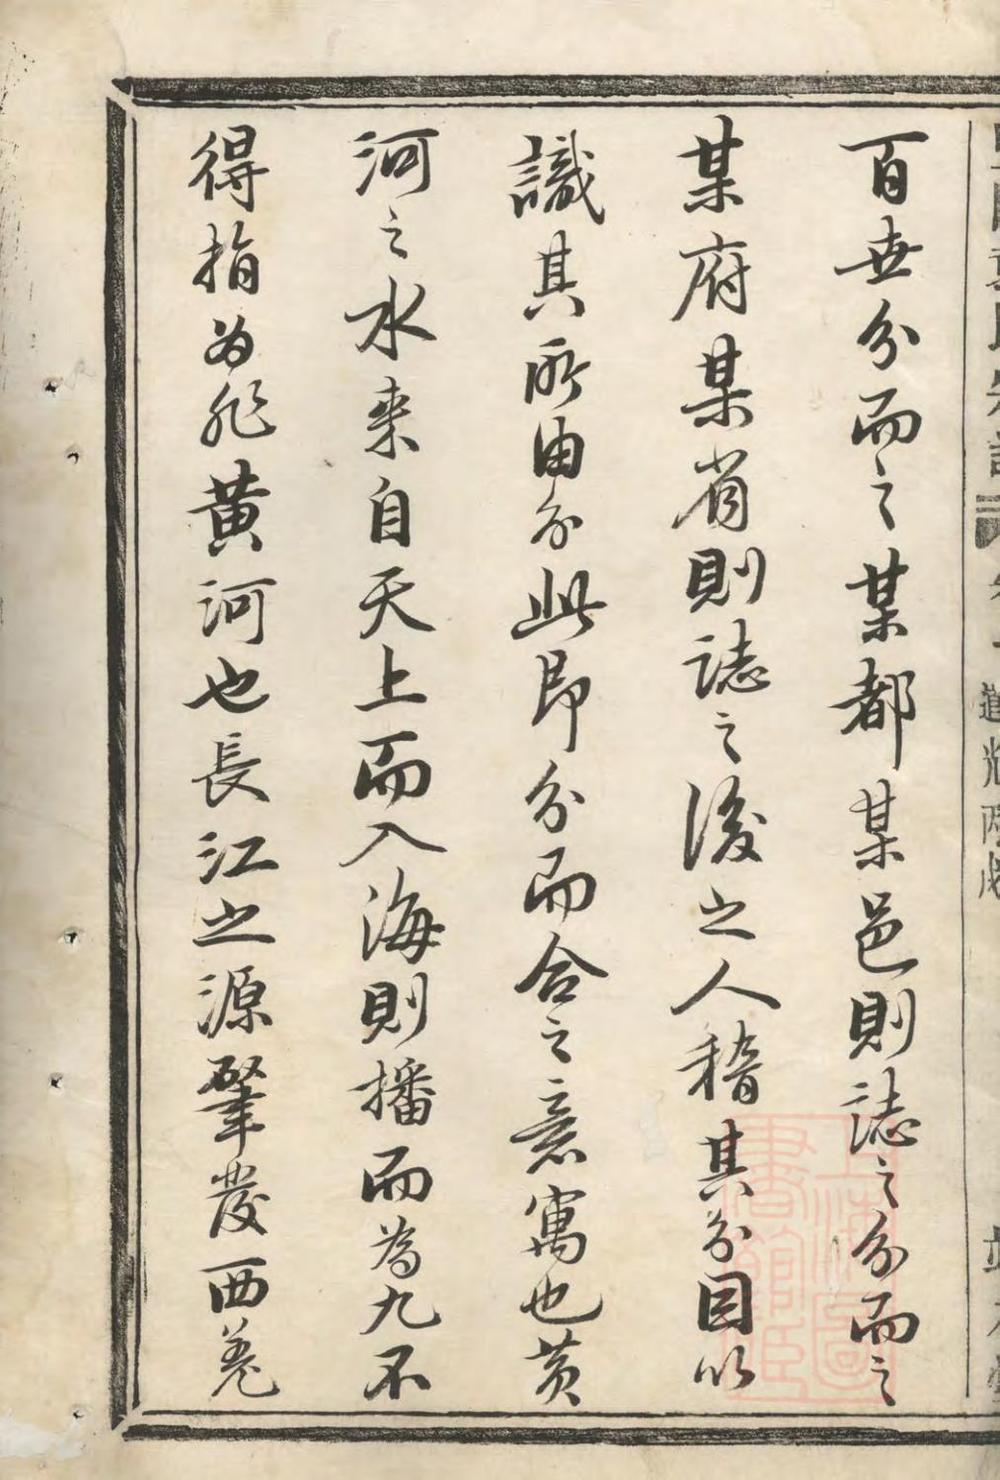 百世分而之某都某邑則誌之分而之
某府某省則誌之後之人稽其分因以
識其所由分此即分而合之意寓也黄
河之水来自天上而入海則播而為九不
得指为非黄河也長江之源肇發西羌